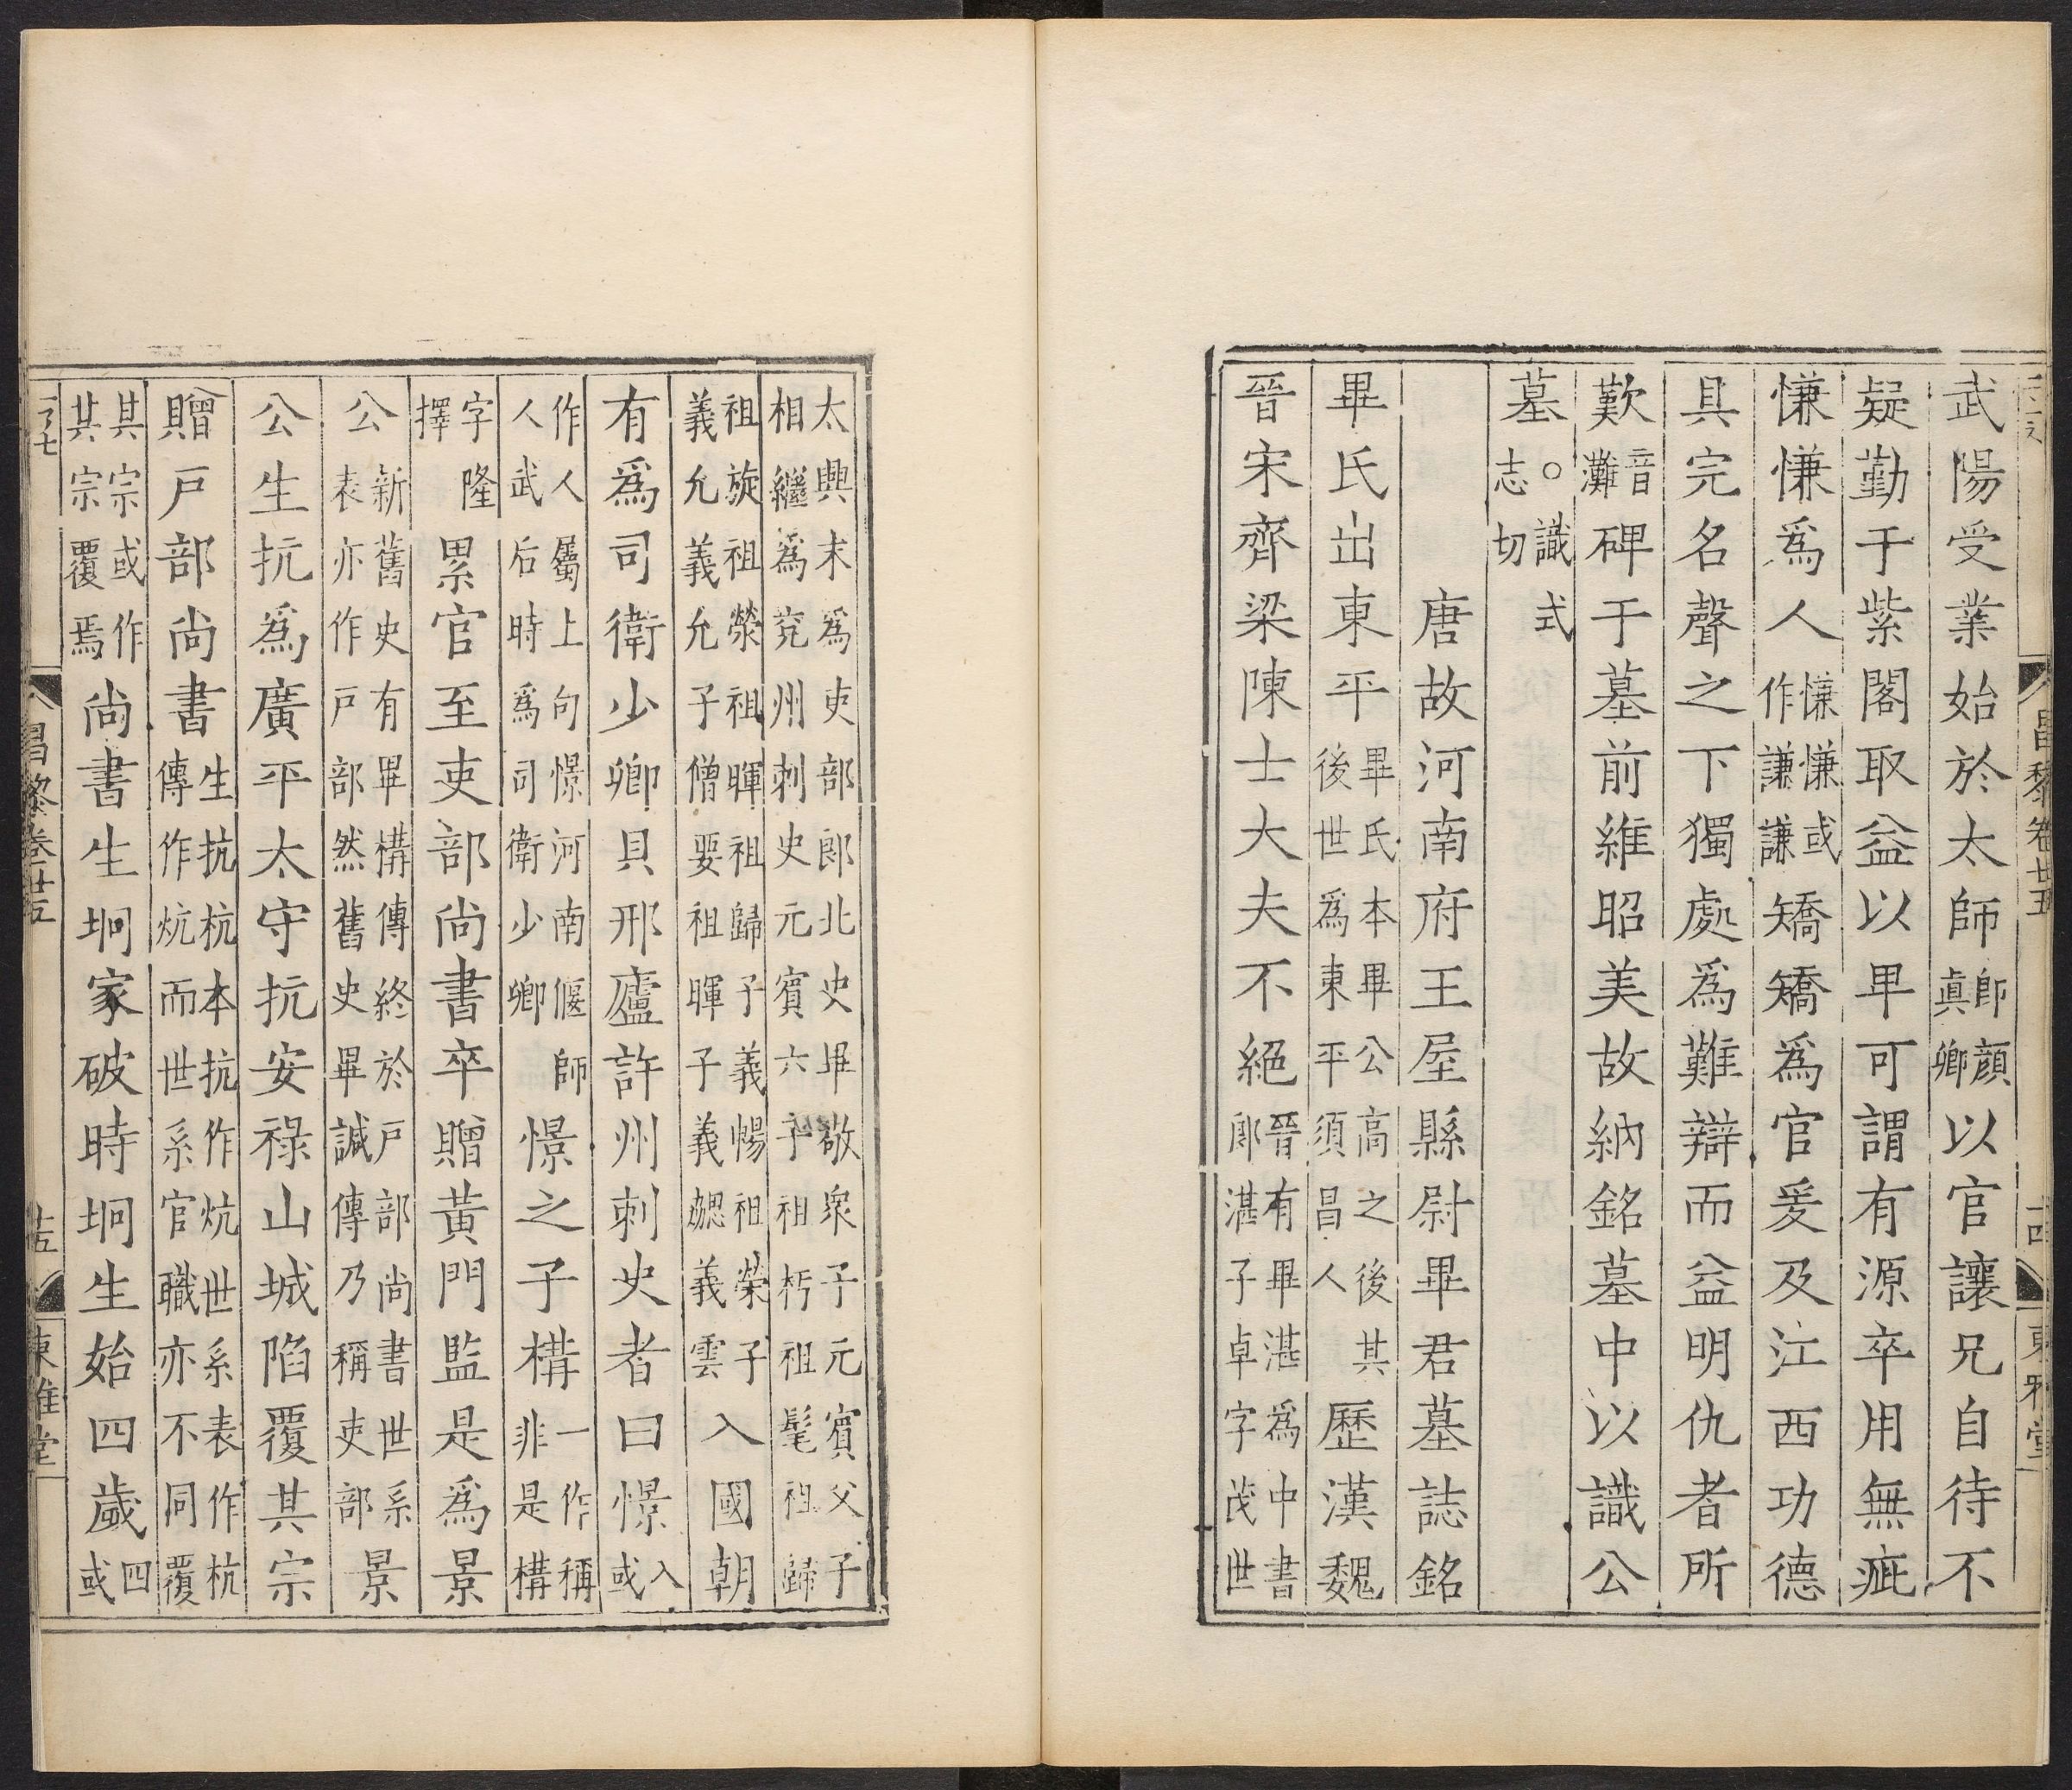 武陽受業始於太師卽顏眞卿以官讓兄自待不
疑勤于紫閣取益以卑可謂有源卒用無疵
慊慊爲人慊慊或作謙謙矯矯爲官爰及江西功德
具完名聲之下獨處爲難辯而益明仇者所
歎音灘碑于墓前維昭美故納銘墓中以識公
墓○識式志切
唐故河南府王屋縣尉畢君墓誌銘
畢氏出東平畢氏本畢公高之後其後世爲東平須昌人歷漢魏
晉宋齊梁陳士大夫不絕晉有畢湛爲中書郎湛子卓字茂世
昌黎卷卅五
十四
東雅堂
太興末爲吏部郎北史畢敬衆子元賓父子相繼爲兗州刺史元賓六子祖朽祖髦祖歸
祖旋祖榮祖暉祖歸子義暢祖榮子義允義允子僧要祖暉子義勰義雲入國朝
有爲司衛少卿貝邢廬許州刺史者曰憬入或
作人人屬上句憬河南偃師人武后時爲司衛少卿憬之子構一作稱非是構
字隆擇累官至吏部尚書卒贈黃門監是爲景
公新舊史有畢構傳終於戶部尚書世系表亦作戶部然舊史畢諴傳乃稱吏部景
公生抗爲廣平太守抗安祿山城陷覆其宗
贈戶部尚書生抗杭本抗作炕世系表作杭傳作炕而世系官職亦不同覆
其宗或作其宗覆焉尚書生坰家破時坰生始四歲四或
昌黎卷卅五
十五
東雅堂